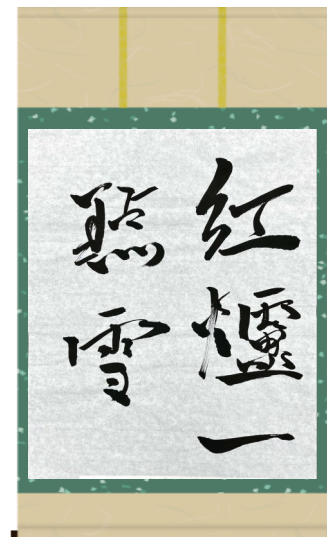 紅爐一
點雪